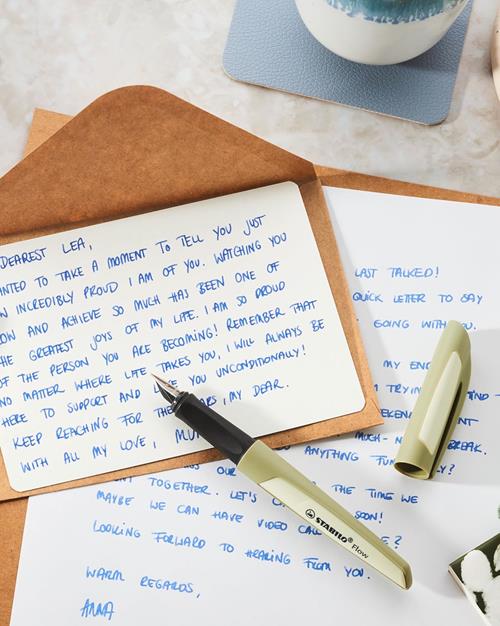 DEAREST LEA,
NTED TO TAKE A MOMENT TO TELL YOU JUST
W INCREDIBLY PROUD I AM OF YOU. WATCHING YOU
OW AND ACHIEVE SO MUCH HAS BEEN ONE OF
HE GREATEST JOYS OF MY LIFE. I AM SO PROUD
OF THE PERSON YOU ARE BECOMING! REMEMBER THAT
NO MATTER WHERE LIFE TAKES YOU, I WILL ALWAYS BE
HERE TO SUPPORT AND YOU UNCONDITIONALLY!
KEEP REACHING FOR THE ARS, MY DEAR.
WITH ALL MY LOVE, MUM
LAST TALKED!
QUICK LETTER TO SAY
GOING WITH YOU.
MY
TRYIN
MUCH- BREAK.
OUR ANYTHING
TOGETHER. LET'S THE TIME WE
MAYBE WE CAN HAVE VIDEO CALL SOON!
LOOKING FORWARD TO HEARING FROM YOU.
WARM REGARDS,
ANNA
STABILO Flow